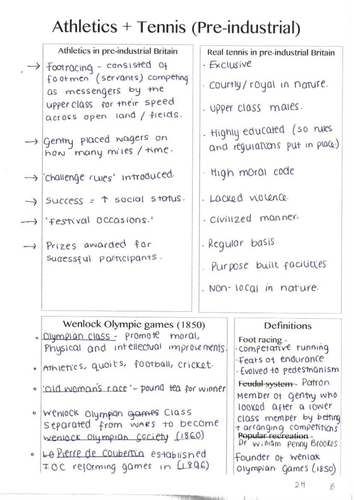 Athletics + Tennis (Pre-industrial)
Athletics in pre-industrial Britain
→ Footracing - consisted of
footmen (servants) competing
as messengers by the
upperclass for their speed
across open land / fields.
→ Gentry placed wagers on
how many miles / time.
→ 'Challenge rules' introduced.
→ Success = ↑ social status.
→ 'Festival occasions.'
→ Prizes awarded for
sucessful participants.
Real tennis in pre-industrial Britain
· Exclusive
· Courtly/royal in nature.
· upper class males.
· Highly educated (so rules
and regulations put in place)
· High moral code
· Lacked violence.
· Civilized manner.
· Regular basis
· Purpose built facilities
· Non-local in nature.
Wenlock Olympic games (1850)
• Olympian class - promote moral,
Physical and intellectual improvements.
• Athletics, quoits, football, cricket.
• 'Old woman's race' - pound tea for winner
• Wenlock Olympian games Class
separated from WARS to become
Wenlock Olympian Society (1860)
• Pierre de Coubertin established
IOC reforming games in (1896)
Definitions
Foot racing -
· Competative running
· Feats of endurance
· Evolved to pedestrianism
Feudal system - Patron
Member of gentry who
looked after a lower
class member by betting
+ arranging competitions
Popular recreation -
Dr William Penny Brookes.
Founder of Wenlock
Olympian Games (1850)